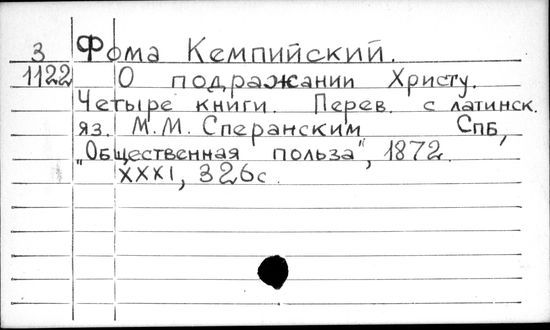 З Фома Кемпийский.
1122 О подражании Христу.
Четыре книги. Перев. с латинск.
яз. М.М. Сперанским СПБ,
„Общественная польза", 1872.
XXXI, 326с.